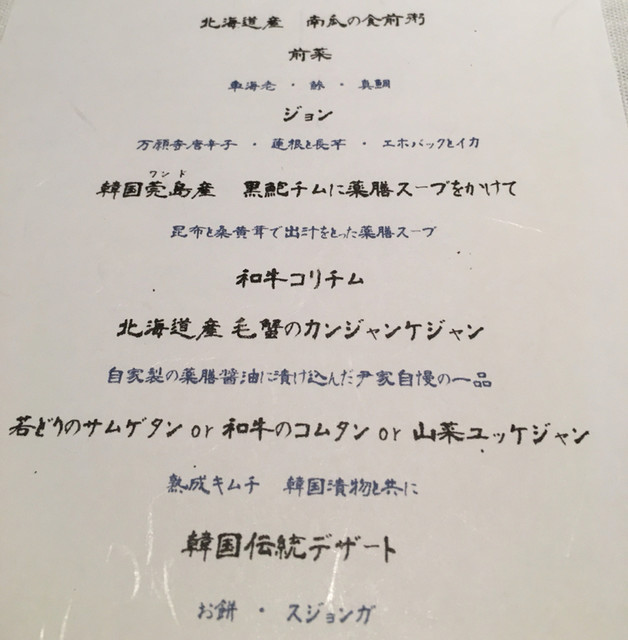 北海道産　南瓜の食前粥
前菜
車海老 ・ 鮑 ・ 真鯛
ジョン
万願寺唐辛子 ・ 蓮根と長芋 ・ エホバックとイカ
ワンド
韓国莞島産　黒鮑チムに薬膳スープをかけて
昆布と桑黄茸で出汁をとった薬膳スープ
和牛コリチム
北海道産毛蟹のカンジャンケジャン
自家製の薬膳醤油に漬け込んだ尹家自慢の一品
若どりのサムゲタン or 和牛のコムタン or 山菜ユッケジャン
熟成キムチ　韓国漬物と共に
韓国伝統デザート
お餅 ・ スジョンガ